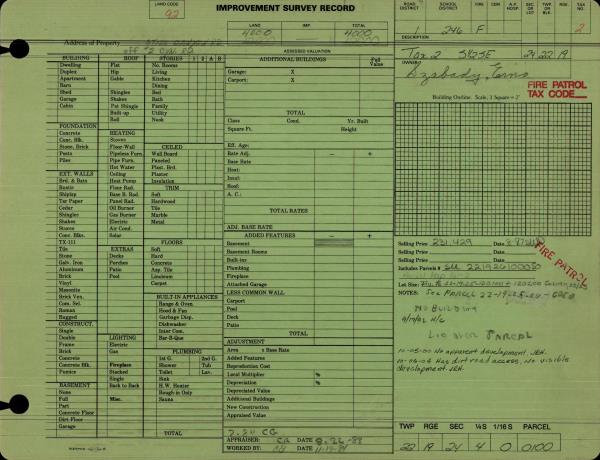 LAND CODE
92
IMPROVEMENT SURVEY RECORD
LAND IMP. TOTAL
4000 4000
ROAD DISTRICT SCHOOL DISTRICT FIRE CEM. A.P. HOSP. SEC. OR LOT TWP. OR BLK. RGE. TAX NO.
246 F 2
DESCRIPTION
Address of Property
off #2 Cyn. Rd
ASSESSED VALUATION
Tax 2 S½SE 24 22 19
OWNER
FIRE PATROL
TAX CODE
Building Outline. Scale, 1 Square = 2'
BUILDING ROOF STORIES 1 2 A B
Dwelling Flat No. Rooms
Duplex Hip Living
Apartment Gable Kitchen
Barn Dining
Shed Shingles Bed
Garage Shakes Bath
Cabin Pat Shingle Family
Built-up Utility
Roll Nook
FOUNDATION
Concrete HEATING
Conc. Blk. Stoves CEILED
Stone, Brick Floor-Wall Wall Board
Posts Pipeless Furn. Paneled
Piles Pipe Furn. Plast. Brd.
Hot Water Plaster
EXT. WALLS Ceiling Insulation
Brd. & Bats Heat Pump TRIM
Rustic Floor Rad. Soft
Shiplap Base B. Rad. Hardwood
Tar Paper Panel Rad. Tile
Cedar Oil Burner Marble
Shingles Gas Burner Metal
Shakes Electric
Stucco Air Cond.
Conc. Blks. Solar FLOORS
TX-111 Soft
Tile EXTRAS Hard
Stone Decks Concrete
Galv. Iron Porches Asp. Tile
Aluminum Patio Linoleum
Brick Pool Carpet
Vinyl
Masonite
Brick Ven. BUILT-IN APPLIANCES
Com. Bel. Range & Oven
Roman Hood & Fan
Rugged Garbage Disp.
CONSTRUCT. Dishwasher
Single Inter Com.
Double LIGHTING Bar-B-Que
Frame Electric
Brick Gas PLUMBING
Concrete 1st G. 2nd G.
Concrete Blk. Fireplace Shower Tub
Pumice Stacked Toilet Lav.
Single Sink
BASEMENT Back to Back H.W. Heater
None Rough in Only
Full Misc. Sauna
Part
Concrete Floor
Dirt Floor
Garage
TOTAL
ADDITIONAL BUILDINGS Full Value
Garage: X
Carport: X
TOTAL
Class Cond. Yr. Built
Square Ft. Height
Eff. Age:
Rate Adj. − +
Base Rate
Heat:
Insul:
Roof:
A. C.:
TOTAL RATES
ADJ. BASE RATE
ADDED FEATURES − +
Basement
Basement Rooms
Built-ins
Plumbing
Fireplace
Attached Garage
LESS COMMON WALL
Carport
Pool
Deck
Patio
TOTAL
ADJUSTMENT
Area x Base Rate
Added Features
Reproduction Cost
Local Multiplier %
Depreciation %
Depreciated Value
Additional Buildings
New Construction
Appraised Value
APPRAISER: CG DATE
WORKED BY: DATE
Selling Price 231,429 Date
Selling Price Date
FIRE PATROL
Includes Parcels #
Lot Size:
NOTES: See PARCEL
No Building
N/C
PARCEL
10-05-00 No apparent development. JEH.
10-05-05 Has dirt road access. No visible
development. JEH.
TWP RGE SEC ¼S 1/16 S PARCEL
22 19 24 4 0 0100